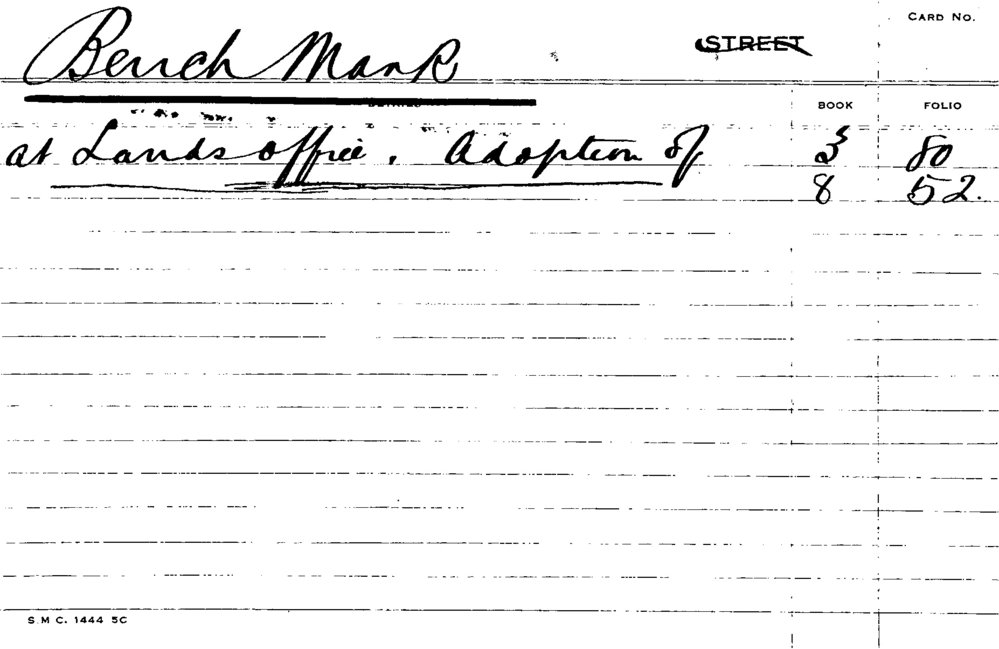 CARD NO.
Bench Mark
STREET
DETAILS
BOOK
FOLIO
at Lands office. Adoption of 3 80
8 52.
S.M C. 1444 5C